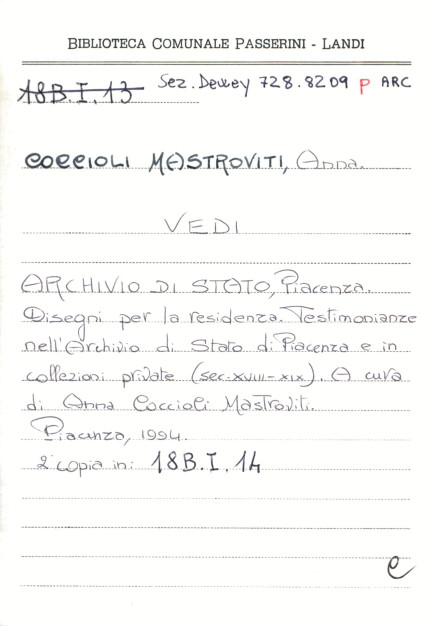 BIBLIOTECA COMUNALE PASSERINI - LANDI
18B.I.13 Sez. Dewey 728.8209 P ARC
COCCIOLI MASTROVITI, Anna.
VEDI
ARCHIVIO DI STATO, Piacenza.
Disegni per la residenza. Testimonianze
nell'Archivio di Stato di Piacenza e in
collezioni private (sec. XVIII-XIX). A cura
di Anna Coccioli Mastroviti.
Piacenza, 1994.
2ª copia in: 18B.I.14
e